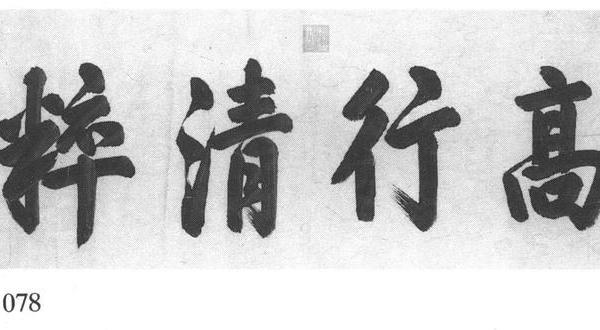 高行清粹
078